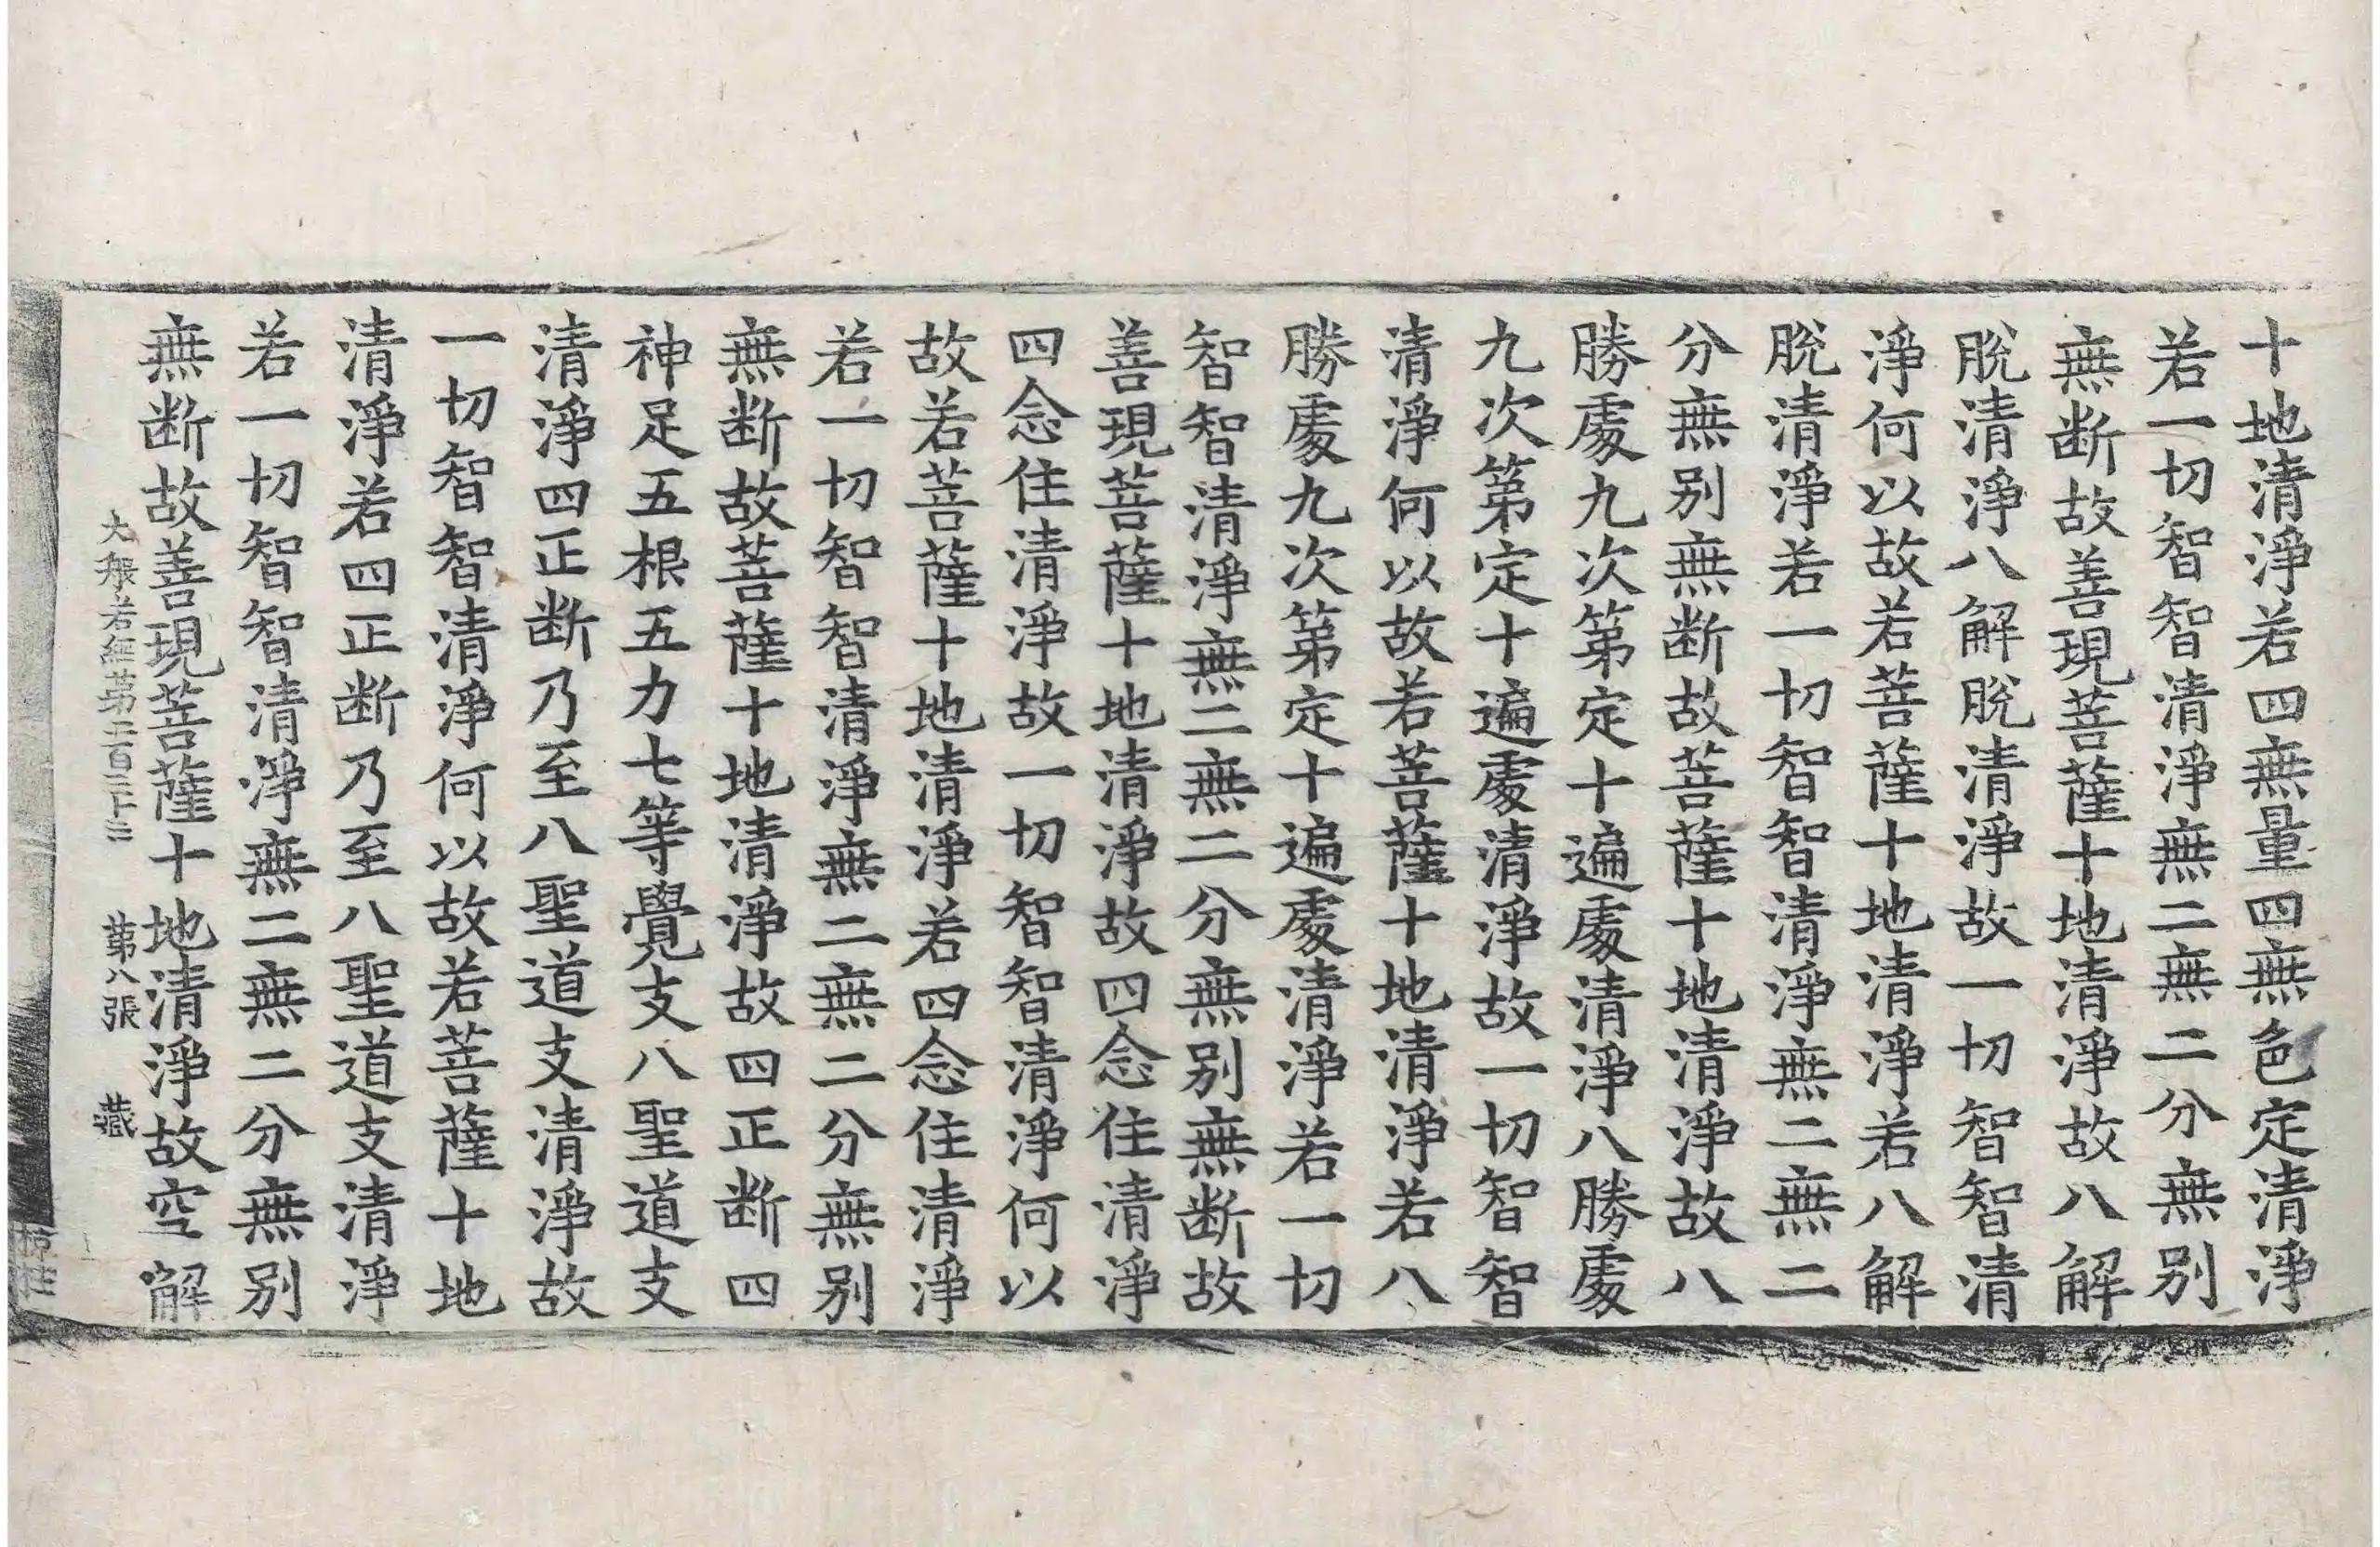 十地清淨若四無量四無色定清淨
若一切智智清淨無二無二分無别
無断故善現菩薩十地清淨故八解
脫清淨八解脫清淨故一切智智清
淨何以故若菩薩十地清淨若八解
脫清淨若一切智智清淨無二無二
分無别無断故菩薩十地清淨故八
勝處九次第定十遍處清淨八勝處
九次第定十遍處清淨故一切智智
清淨何以故若菩薩十地清淨若八
勝處九次第定十遍處清淨若一切
智智清淨無二無二分無别無断故
善現菩薩十地清淨故四念住清淨
四念住清淨故一切智智清淨何以
故若菩薩十地清淨若四念住清淨
若一切智智清淨無二無二分無别
無断故菩薩十地清淨故四正断四
神足五根五力七等覺支八聖道支
清淨四正断乃至八聖道支清淨故
一切智智清淨何以故若菩薩十地
清淨若四正断乃至八聖道支清淨
若一切智智清淨無二無二分無别
無断故善現菩薩十地清淨故空解
大般若經第二百三十三 第八張 藏